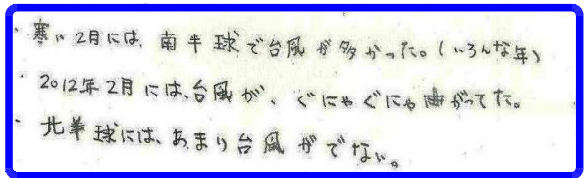 ・寒い2月には、南半球で台風が多かった。(いろんな年)
・2012年2月には、台風が、ぐにゃぐにゃ曲がってた。
・北半球には、あまり台風がでない。